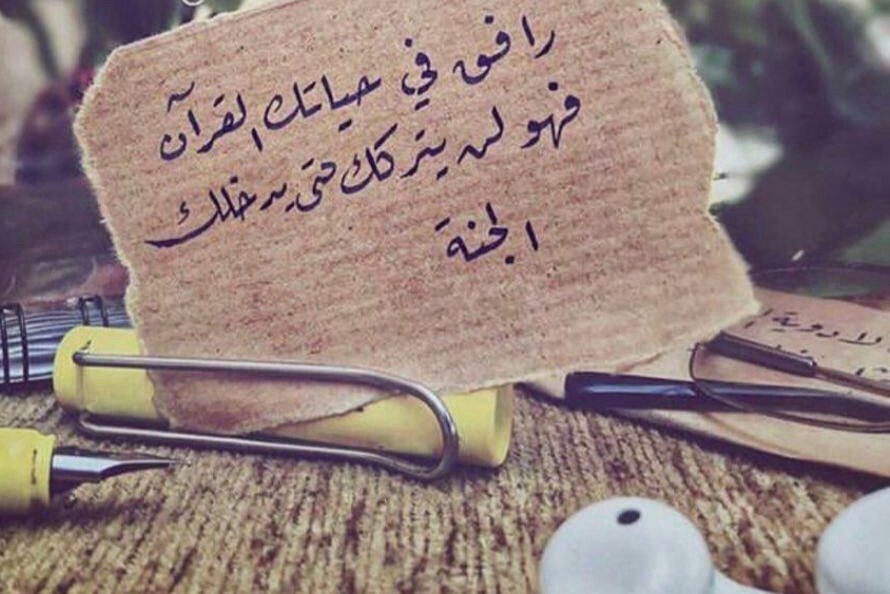 رافق في حياتك القرآن
فهو لن يتركك حتى يدخلك
الجنة